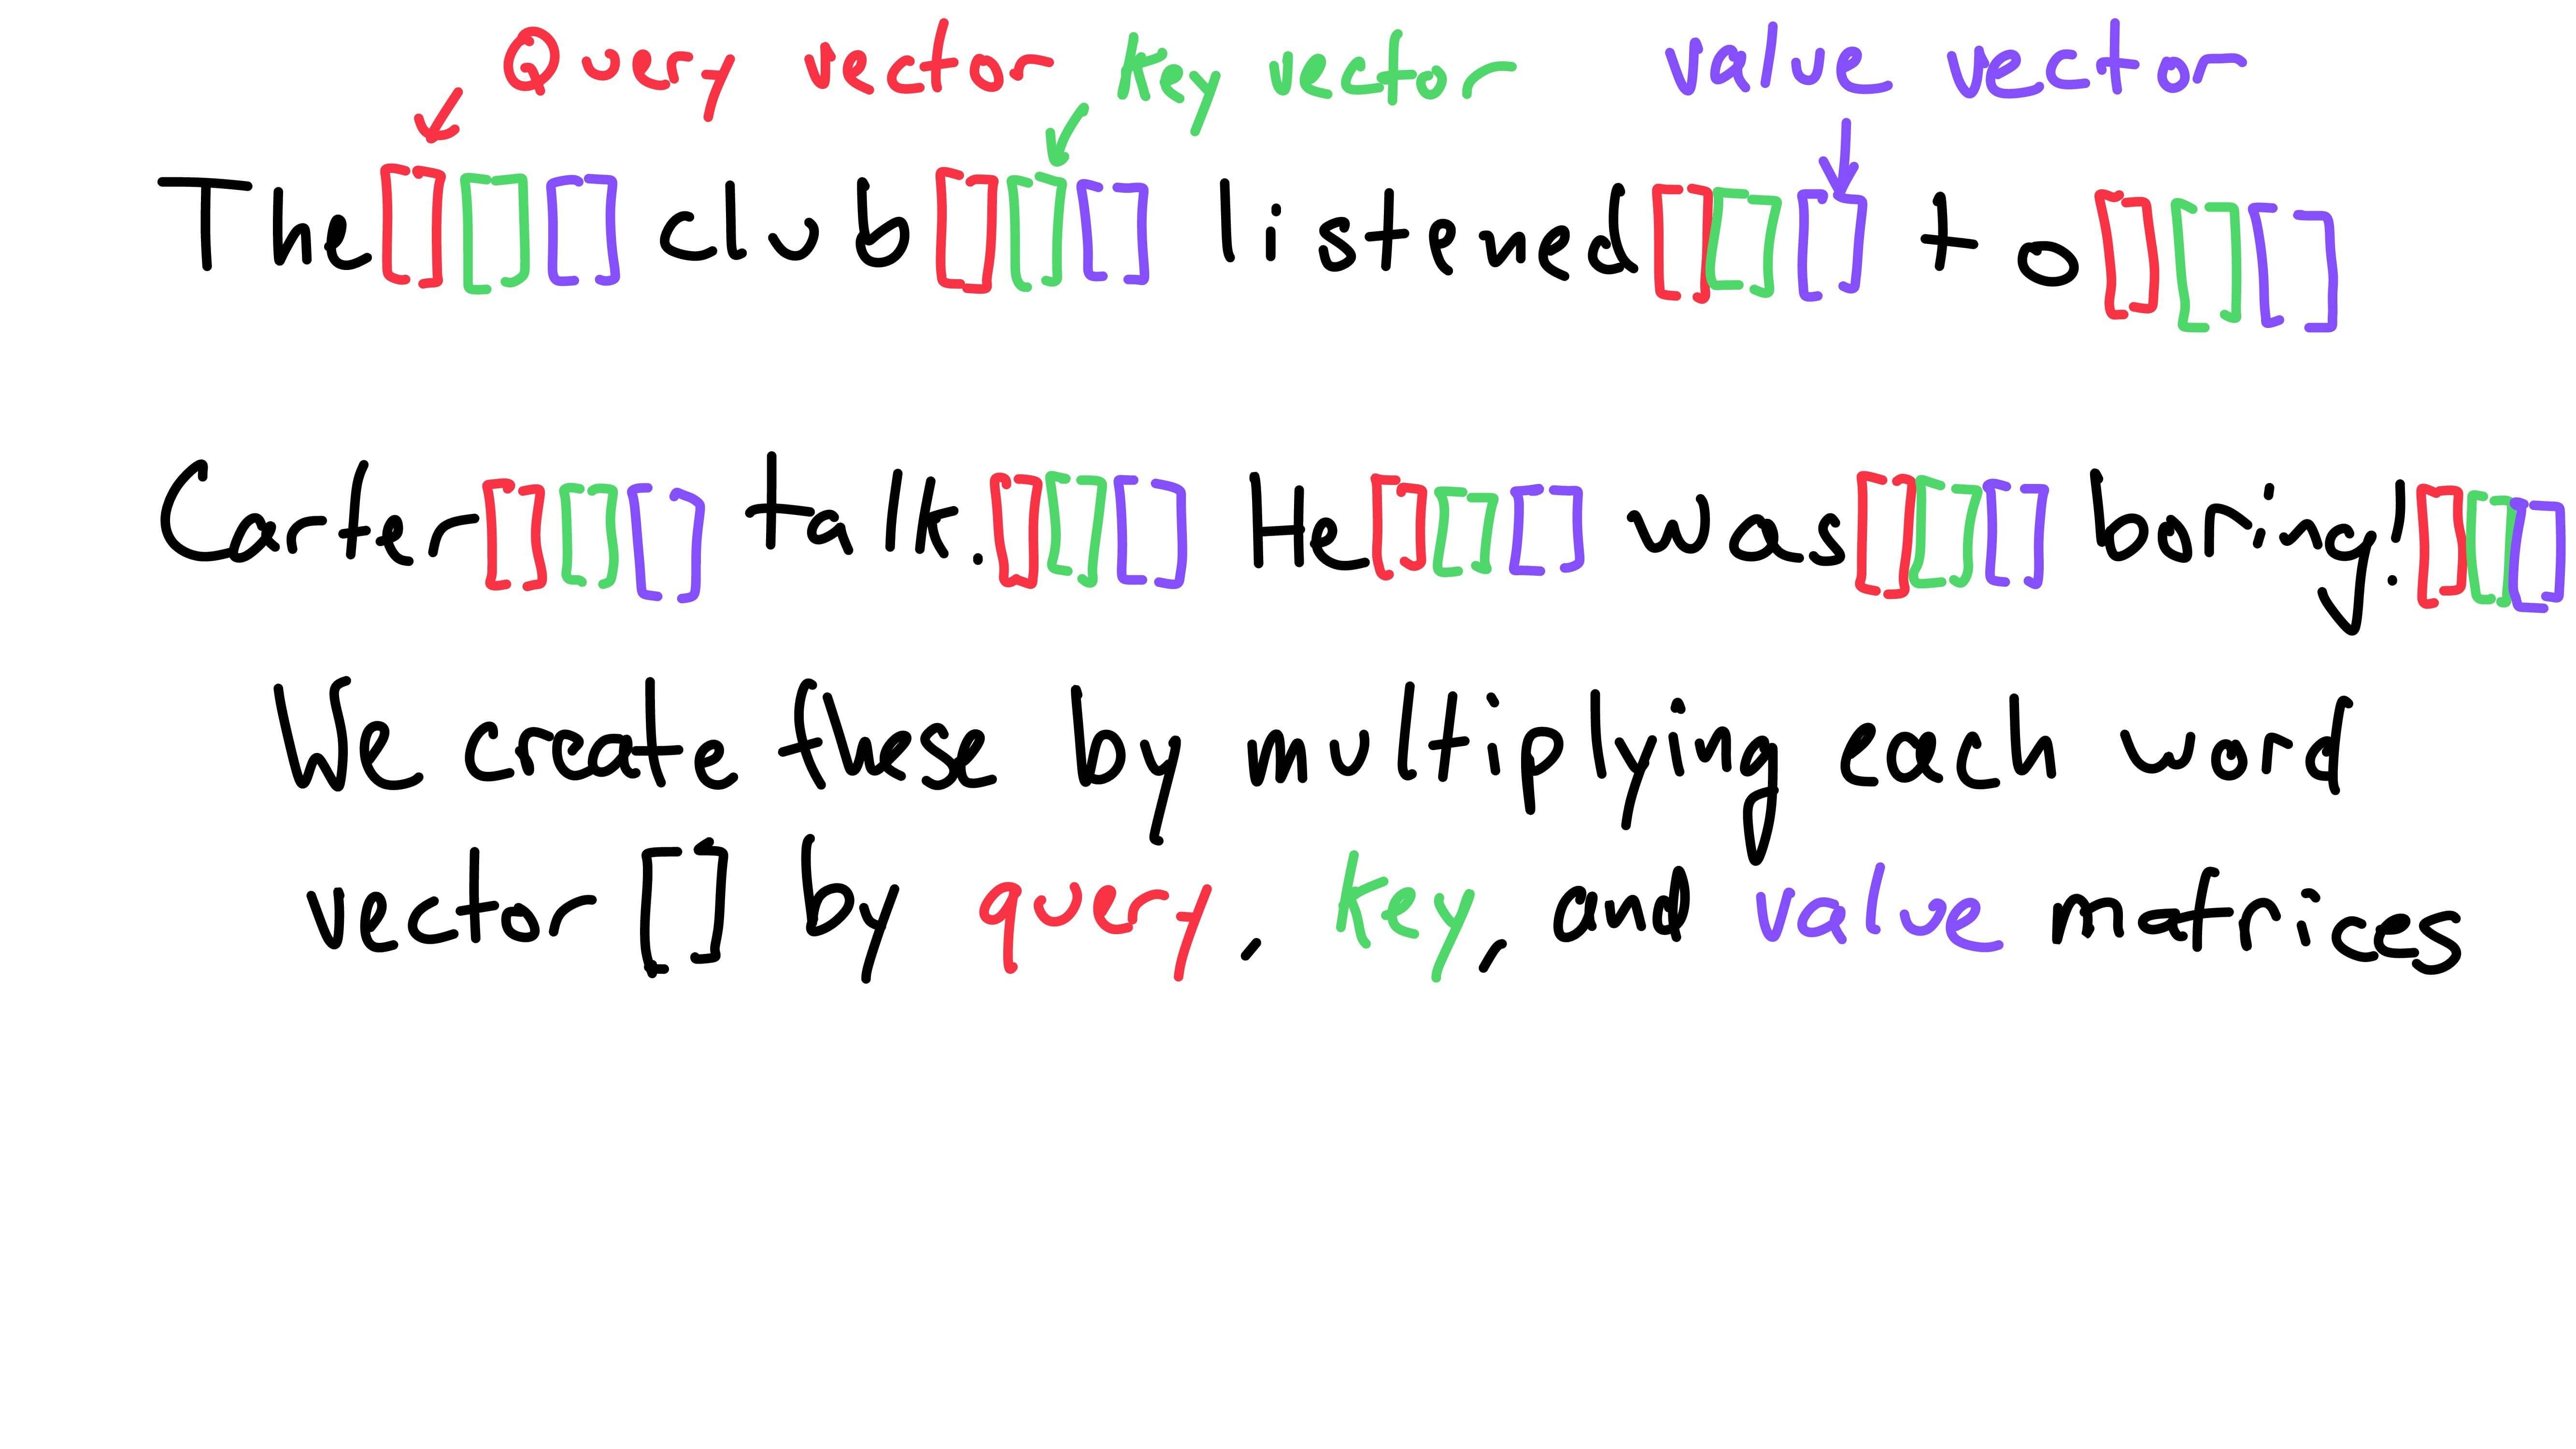 Query vector key vector value vector
The[][][] club[][][] listened[][][] to[][][]
Carter[][][] talk.[][][] He[][][] was[][][] boring![][][]
We create these by multiplying each word
vector [] by query, key, and value matrices